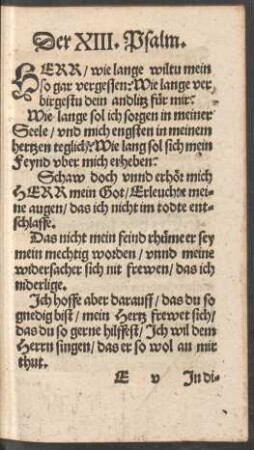 Der XIII. Psalm.
HERR / wie lange wiltu mein
so gar vergessen? Wie lange ver
birgestu dein andlitz für mir?
Wie lange sol ich sorgen in meiner
Seele / vnd mich engsten in meinem
hertzen teglich? Wie lang sol sich mein
Feynd vber mich erheben?
Schaw doch vnnd erhöt mich
HERR mein Got / Erleuchte mei-
ne augen / das ich nicht im todte ent-
schlaffe.
Das nicht mein feind rhüme er sey
mein mechtig worden / vnnd meine
widersacher sich nit frewen / das ich
niderlige.
Ich hoffe aber darauff / das du so
gnedig bist / mein Hertz frewet sich /
das du so gerne hilffest / Ich wil dem
Herrn singen / das er so wol an mir
thut.
E v In di-